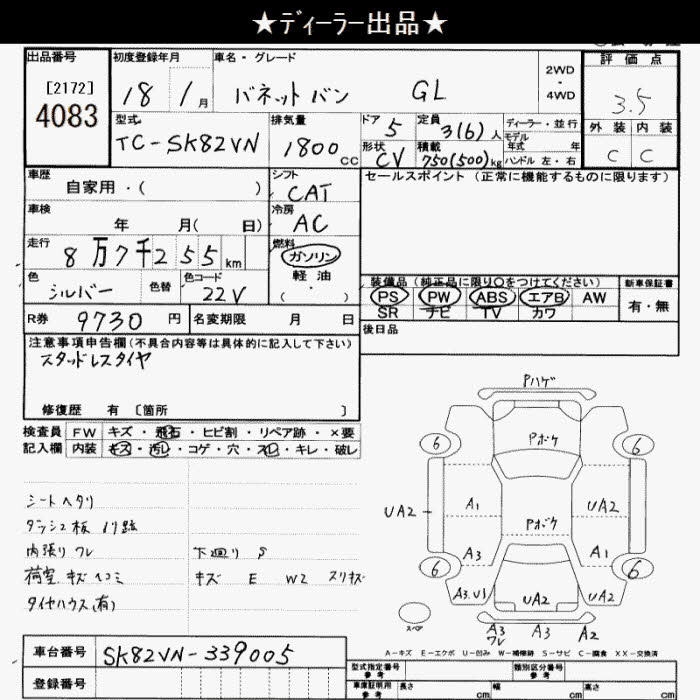 ★ディーラー出品★
出品番号
[2172]
4083
初度登録年月
18 / 1月
車名・グレード
バネットバン GL
2WD
・
4WD
評価点
3.5
外装 内装
C C
型式
TC-SK82VN
排気量
1800 cc
ドア
5
形状
CV
定員
3(6)人
積載
750(500)kg
ディーラー・並行
モデル年式 年
ハンドル 左・右
車歴
自家用・( )
シフト
CAT
セールスポイント (正常に機能するものに限ります)
車検
年 月( 日)
冷房
AC
走行
8万7千255km
燃料
ガソリン
軽油
・( )
色
シルバー
色替
色コード
22V
装備品(純正品に限り○をつけてください)
PS PW ABS エアB AW
SR ナビ TV カワ
新車保証書
有・無
R券 9730円
名変期限 月 日
後日品
注意事項申告欄(不具合内容等は具体的に記入して下さい)
スタッドレスタイヤ
修復歴 有 [箇所 ]
検査員 FW キズ・飛石・ヒビ割・リペア跡・×要
記入欄 内装 キズ・汚レ・コゲ・穴・スレ・キレ・破レ
シートヘタリ
ダッシュ板 ノリ跡
内張りワレ 下廻り S
荷室キズヘコミ キズ E W2 スリキズ
タイヤハウス(有)
Pハゲ
Pボケ
6 6
A1 UA2
UA2
Pボケ
A3 A1
6 6
A3.U1 UA2 UA2
スペア
A3 A3 A2
ワレ
A-キズ E-エクボ U-凹み W-補修跡 S-サビ C-腐食 XX-交換済
車台番号 SK82VN-339005
登録番号
型式指定番号
参考
類別区分番号
参考
車庫証明用
参考
長さ cm 幅 cm 高さ cm